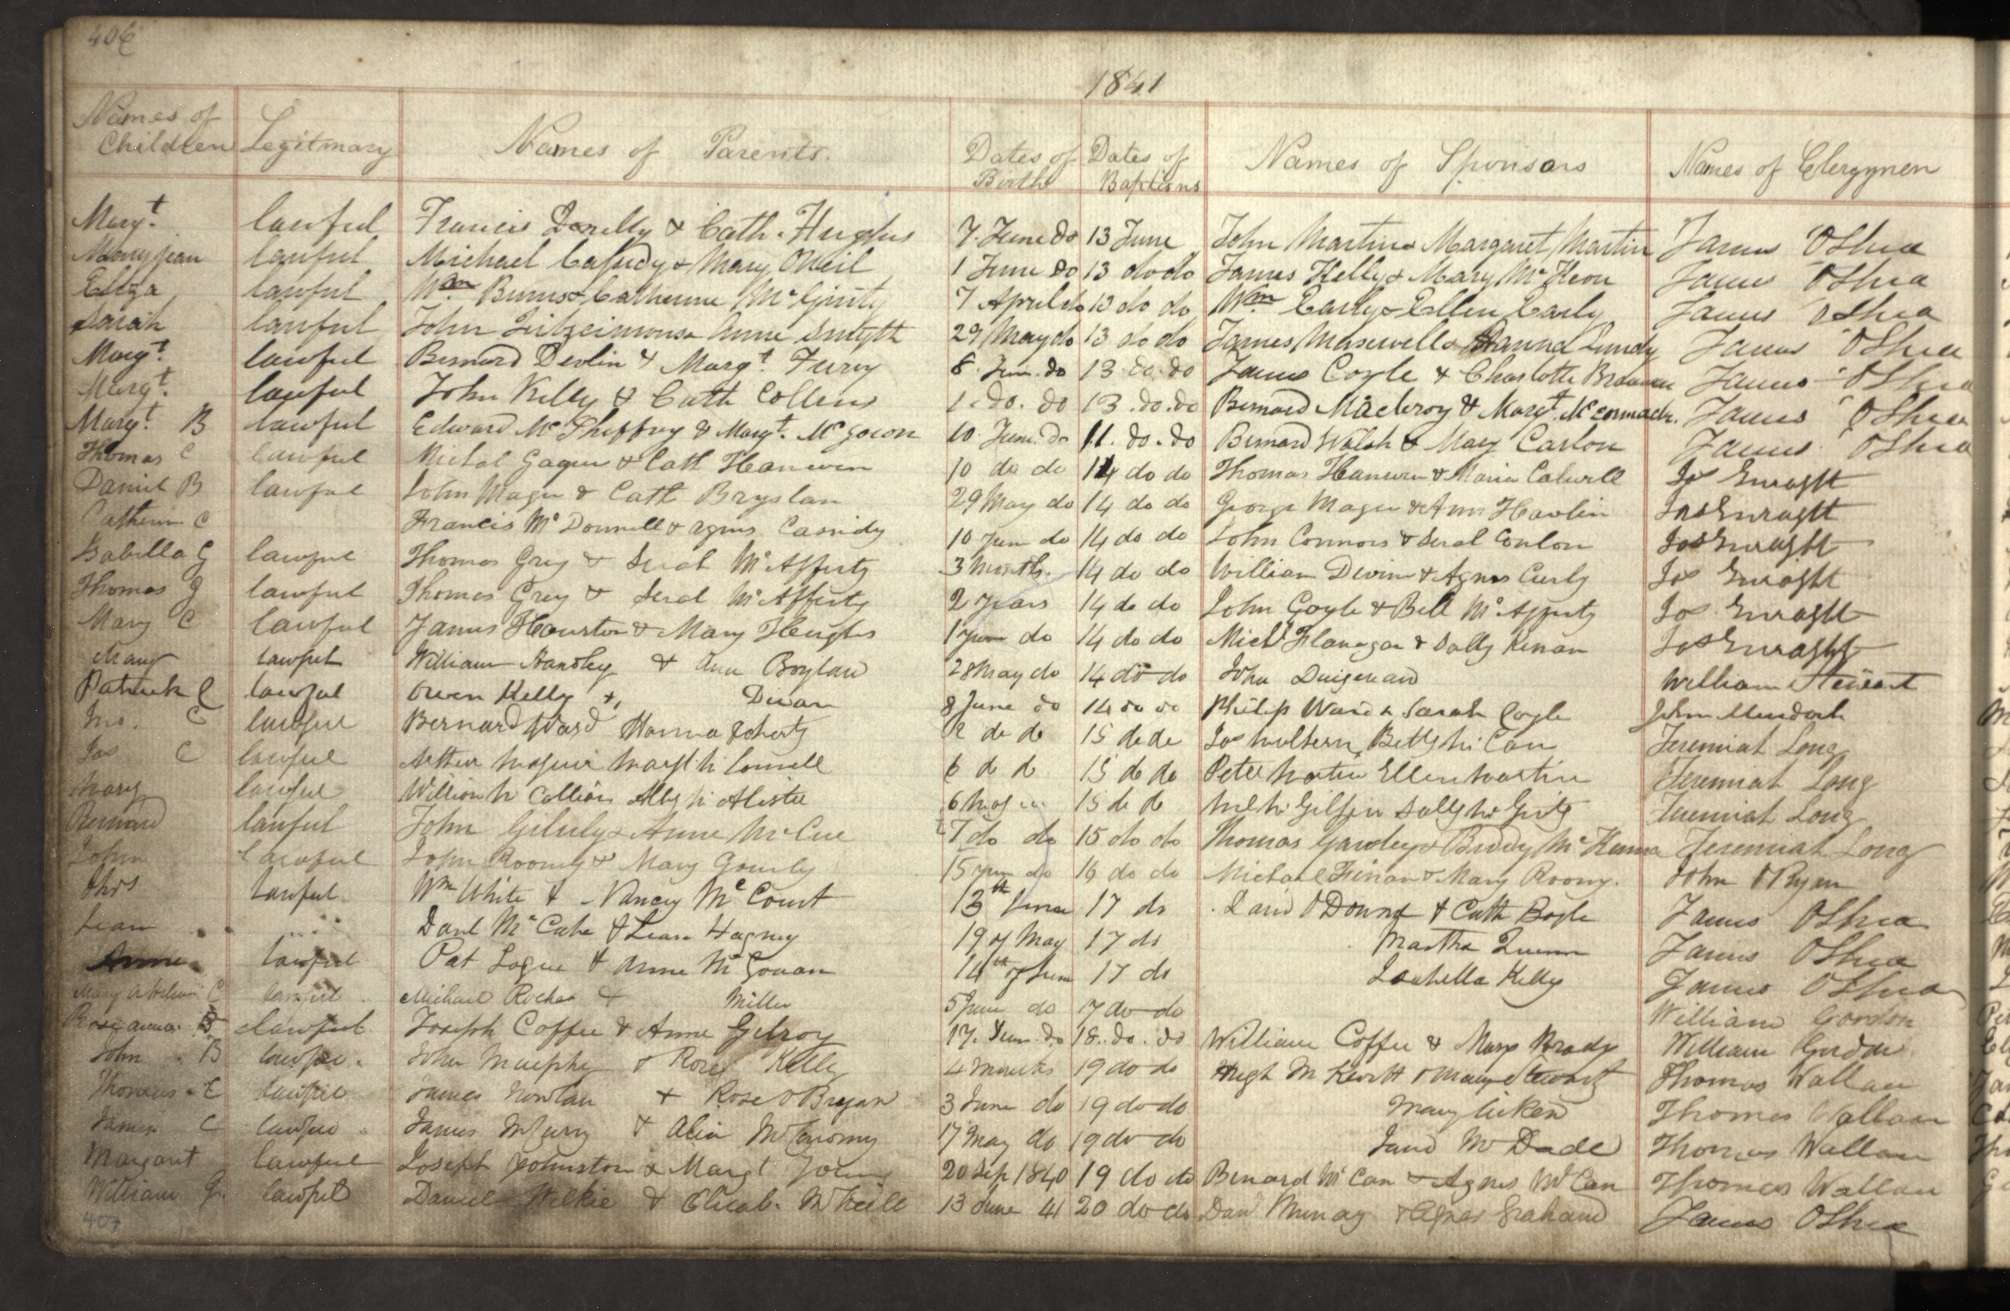 406
1841
Names of Children Legitmacy Names of Parents. Dates of Birth Dates of Baptisms Names of Sponsors Names of Clergymen
Margt. lawful Francis & Cath. Hughes 7. June do 13 June John Martin & Margaret Martin James OShea
Mary jean lawful Michael Casudy & Mary ONeil 1 June do 13 do do James Kelly & Mary McKeon James OShea
Eliza lawful Wm Burns & Catherine McGinty 7 April do 13 do do Wm Early & Ellen Early James OShea
Sarah lawful John & Anne Smyth 29 May do 13 do do James Maxwell & Lundy James OShea
Margt. lawful Bernard Devlin & Margt. Fury 8. Jun. do 13 do. do James Coyle & Charlotte James OShea
Margt. lawful John Kelly & Cath Collens 1. do. do 13. do. do Bernard & Margt. McCormack. James OShea
Margt. B lawful Edward & Margt. McGowan 10. June. do 11. do. do Bernard Walsh & Mary Carlon James OShea
Thomas C lawful Michal & Cath 10 do do 14 do do Thomas & Maria Jas Enraght
Daniel B lawful John Magee & Cath 29 May do 14 do do George Magee & Ann Havlin Jas Enraght
Catherin C Francis McDonnell & Agnes Cassidy 10 Jun do 14 do do John Connors & Seral Conlon Jas Enraght
Isabella G lawful Thomas Grey & Serah McAfferty 3 Months. 14 do do William Devin & Agnes Curly Jas Enraght
Thomas G lawful Thomas Grey & Seral McAfferty 2 years 14 do do John Coyle & Bell McAfferty Jas Enraght
Mary C lawful James Houston & Mary Hughes 1 June do 14 do do Michl Flanagan & Sally Kenan Jas Enraght
Mary lawful William & Ann Boylan 28 May do 14 do do John Duigenan William Stewart
Patrick C lawful Owen Kelly & Divan 8 June do 14 do do Philip Ward & Sarah Coyle John Murdoch
Jno. C lawful Bernard Ward Hanna Doherty 12 do do 15 do do Jas Betty McCan Jeremiah Long
Jas C lawful Arthur Maguir Maryt McConnell 6 do do 15 do do Peter Martin Ellen Martin Jeremiah Long
Mary lawful William McAlister 6 15 do do Sally McGinty Jeremiah Long
Bernard lawful John & Anne McCue 7 do do 15 do do Thomas & Biddy McKenna Jeremiah Long
John lawful John Roony & Mary Gourly 15 Jun do 16 do do Michael & Mary Roony. John ORyan
lawful Wm White & Nancy McCourt 13th June 17 do & Cath Boyle James OShea
Jean Danl McCabe & Jean Hagney 19 of May 17 do Martha Quinn James OShea
Anne lawful Pat Logue & Anne McGowan 14th of June 17 do Isabella Kelly James OShea
Mary C lawful Michael & Miller 5 June do 17 do do William Gordon
Rose anna. B lawful Joseph Coffee & Anne Gilroy 17. Jun. do 18. do. do William Coffee & Mary Brady William Gordon
John. B lawful John Murphy & Rose Kelly 4 Months 19 do do Hugh McKevitt & Mary Stewart Thomas Wallace
Thomas. C lawful James Nowlan & Rose OBryan 3 June do 19 do do Mary Aicken Thomas Wallace
James C lawful James McCurry & Alice 17 May do 19 do do Jane McDade Thomas Wallace
Margaret lawful Joseph Johnston & Margt Young 20 Sep 1840 19 do do Bernard McCan & Agnes McCan Thomas Wallace
William G. lawful Daniel Wilkie & Elizab. McNeill 13 June 41 20 do do Danl Murray & Agnes Graham James OShea
407